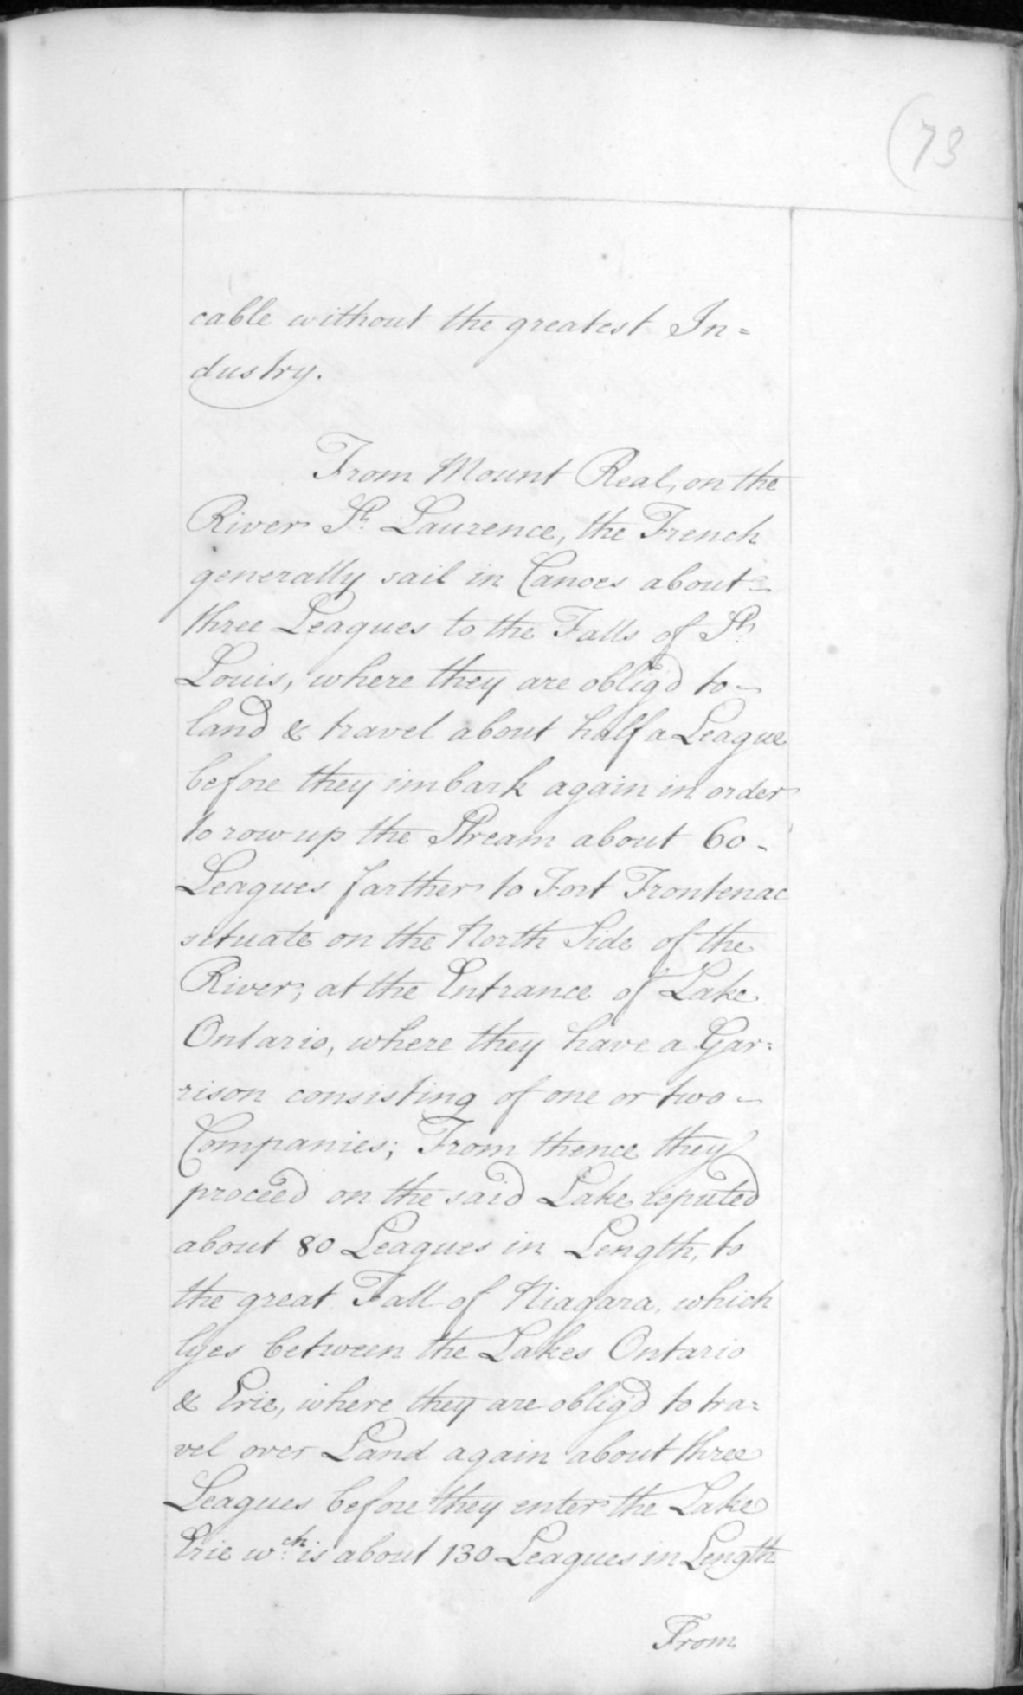 (73
cable without the greatest In=
dustry.
From Mount Real, on the
River St. Laurence, the French
generally sail in Canoes about -
three Leagues to the Falls of St.
Louis, where they are oblig'd to -
land & travel about half a League
before they imbark again in order
to row up the Stream about 60 -
Leagues farther to Fort Frontenac
situate on the North Side of the
River, at the Entrance of Lake
Ontario, where they have a Gar=
rison consisting of one or two -
Companies; From thence they
proceed on the said Lake reputed
about 80 Leagues in Length, to
the great Fall of Niagara, which
lyes between the Lakes Ontario
& Erie, where they are oblig'd to tra=
vel over Land again about three
Leagues before they enter the Lake
Erie wch. is about 130 Leagues in Length
From